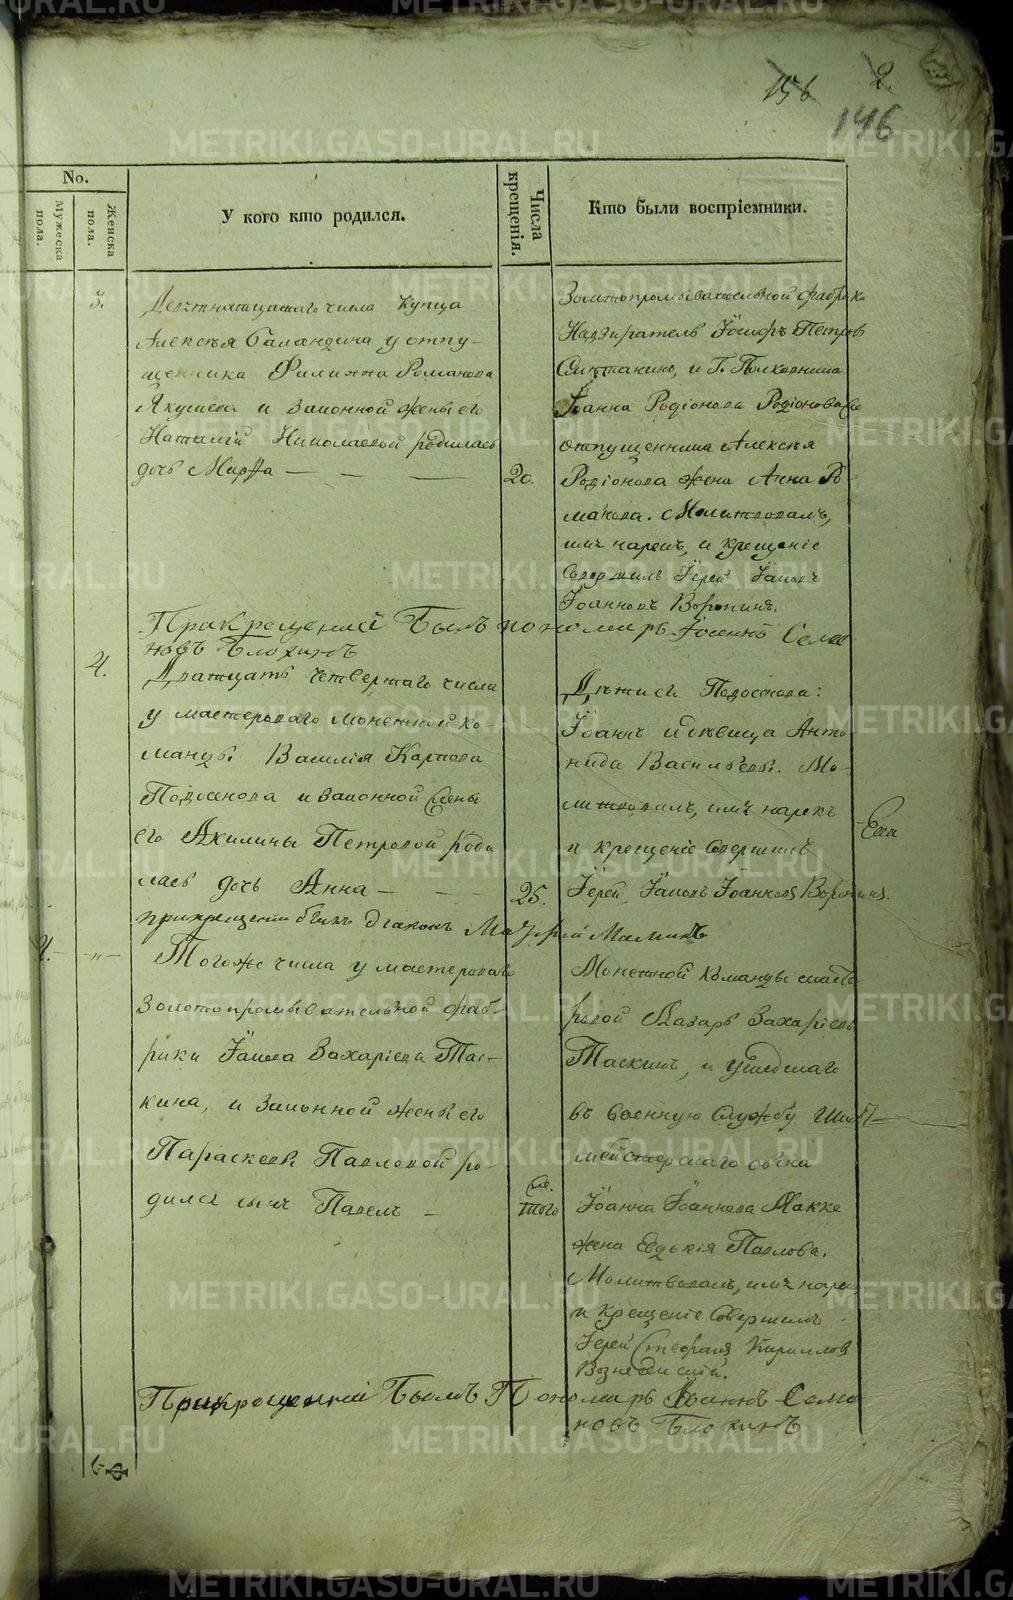 156 2.
146
No.
Мужеска пола.
Женска пола.
У кого кто родился.
Числа крещенія.
Кто были воспріемники.
3.
Девятнатцатаго числа купца
Алексѣя Баландина у отпу-
щенника Филиппа Романова
Якушева и законной жены его
Наталіи Николаевой родилась
дочь Марѳа — — —
20.
Золотопромывательной фабрики
Надзиратель Іосифъ Петровъ
и Г. Полковника
Іоанна Родіонова
отпущенника Алексѣя
Родіонова жена Анна Ро
манова. Молитвовалъ,
имя нарекъ, и крещеніе
совершилъ Іерей Іаковъ
Іоанновъ Воронинъ.
При крещеніи былъ пономарь Семе
новъ Блохинъ
4.
Дватцать четвертаго числа
у мастероваго монетной ко-
манды Василія Карпова
Подосенова и законной жены
его Акилины Петровой роди
лась дочь Анна — —
25.
Дѣти его Подосенова:
Іоаннъ и дѣвица Анто
нида Васильевы. Мо-
литвовалъ, имя нарекъ
и крещеніе совершилъ
Іерей Іаковъ Іоанновъ Воронинъ.
при крещеніи былъ діаконъ Маминъ
4. — „ —
Тогоже числа у мастероваго
золотопромывательной фаб-
рики Іакова Захаріева Тас-
кина, и законной жены его
Параскевы Павловой ро-
дился сынъ Павелъ —
того
Монетной команды масте
ровой Лазарь Захаріевъ
Таскинъ, и ушедшаго
въ военную службу Шихт-
мейстерскаго сына
Іоанна Іоаннова Макке
жена Евдокія Павлова.
Молитвовалъ, имя нарекъ
и крещеніе совершилъ
Іерей Стефанъ Кирилловъ
Вознесенскій.
При крещеніи былъ Пономарь Іоаннъ Семе
новъ Блохинъ
METRIKI.GASO-URAL.RU